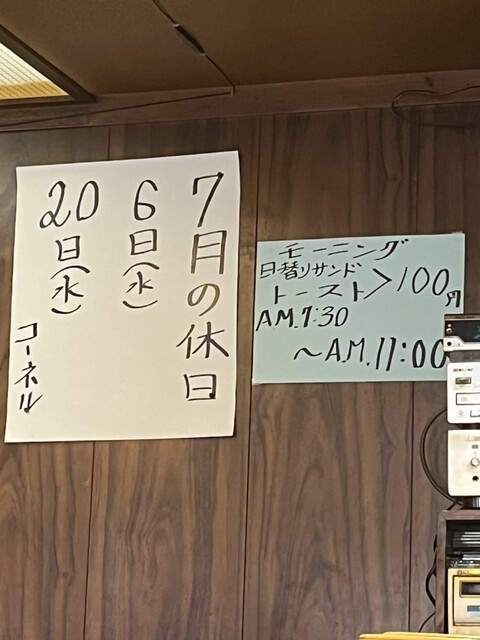 7月の休日
6日(水)
20日(水)
コーネル
モーニング
日替りサンド
トースト＞100円
AM.7:30
～A.M.11:00